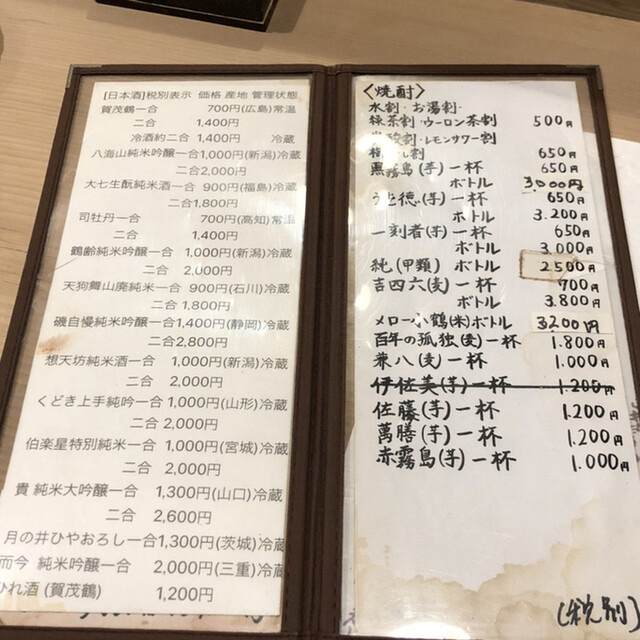 [日本酒]税別表示 価格 産地 管理状態
賀茂鶴一合 700円(広島)常温
二合 1,400円
冷酒約二合 1,400円 冷蔵
八海山純米吟醸一合1,000円(新潟)冷蔵
二合2,000円
大七生酛純米酒一合 900円(福島)冷蔵
二合1,800円
司牡丹一合 700円(高知)常温
二合 1,400円
鶴齢純米吟醸一合 1,000円(新潟)冷蔵
二合 2,000円
天狗舞山廃純米一合 900円(石川)冷蔵
二合 1,800円
磯自慢純米吟醸一合1,400円(静岡)冷蔵
二合2,800円
想天坊純米酒一合 1,000円(新潟)冷蔵
二合 2,000円
くどき上手純吟一合 1,000円(山形)冷蔵
二合 2,000円
伯楽星特別純米一合 1,000円(宮城)冷蔵
二合 2,000円
貴 純米大吟醸一合 1,300円(山口)冷蔵
二合 2,600円
月の井ひやおろし一合1,300円(茨城)冷蔵
而今 純米吟醸一合 2,000円(三重)冷蔵
ひれ酒 (賀茂鶴) 1,200円
〈焼酎〉
水割・お湯割・
緑茶割・ウーロン茶割 500円
割・レモンサワー割
割 650円
黒霧島(芋)一杯 650円
ボトル 3,000円
一杯 650円
ボトル 3.200円
一刻者(芋)一杯 650円
ボトル 3,000円
純(甲類) ボトル 2500円
吉四六(麦)一杯 700円
ボトル 3.800円
メロー小鶴(米)ボトル 3200円
百年の孤独(麦)一杯 1.800円
兼八(麦)一杯 1.000円
伊佐美(芋)一杯 1.200円
佐藤(芋)一杯 1,200円
萬膳(芋)一杯 1,200円
赤霧島(芋)一杯 1.000円
(税別)